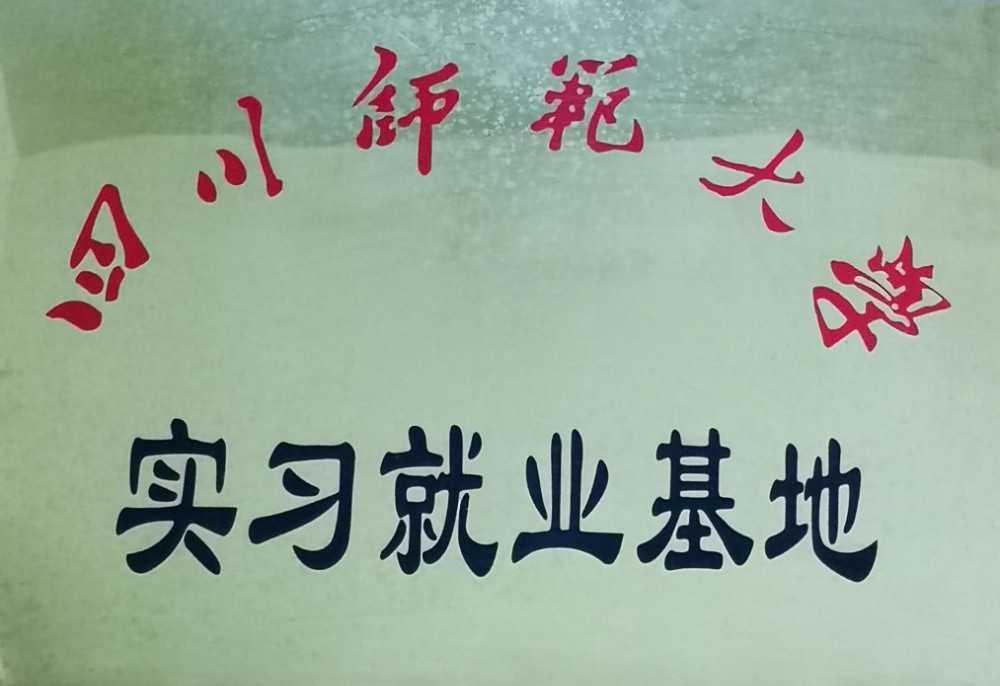 四川師範大學
实习就业基地